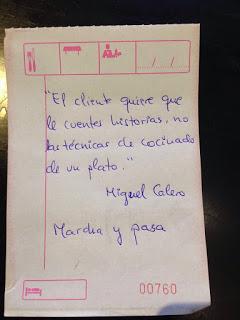 / /
"El cliente quiere que
le cuentes historias, no
las técnicas de cocinado
de un plato."
Miguel Calero
Marcha y pasa
00760